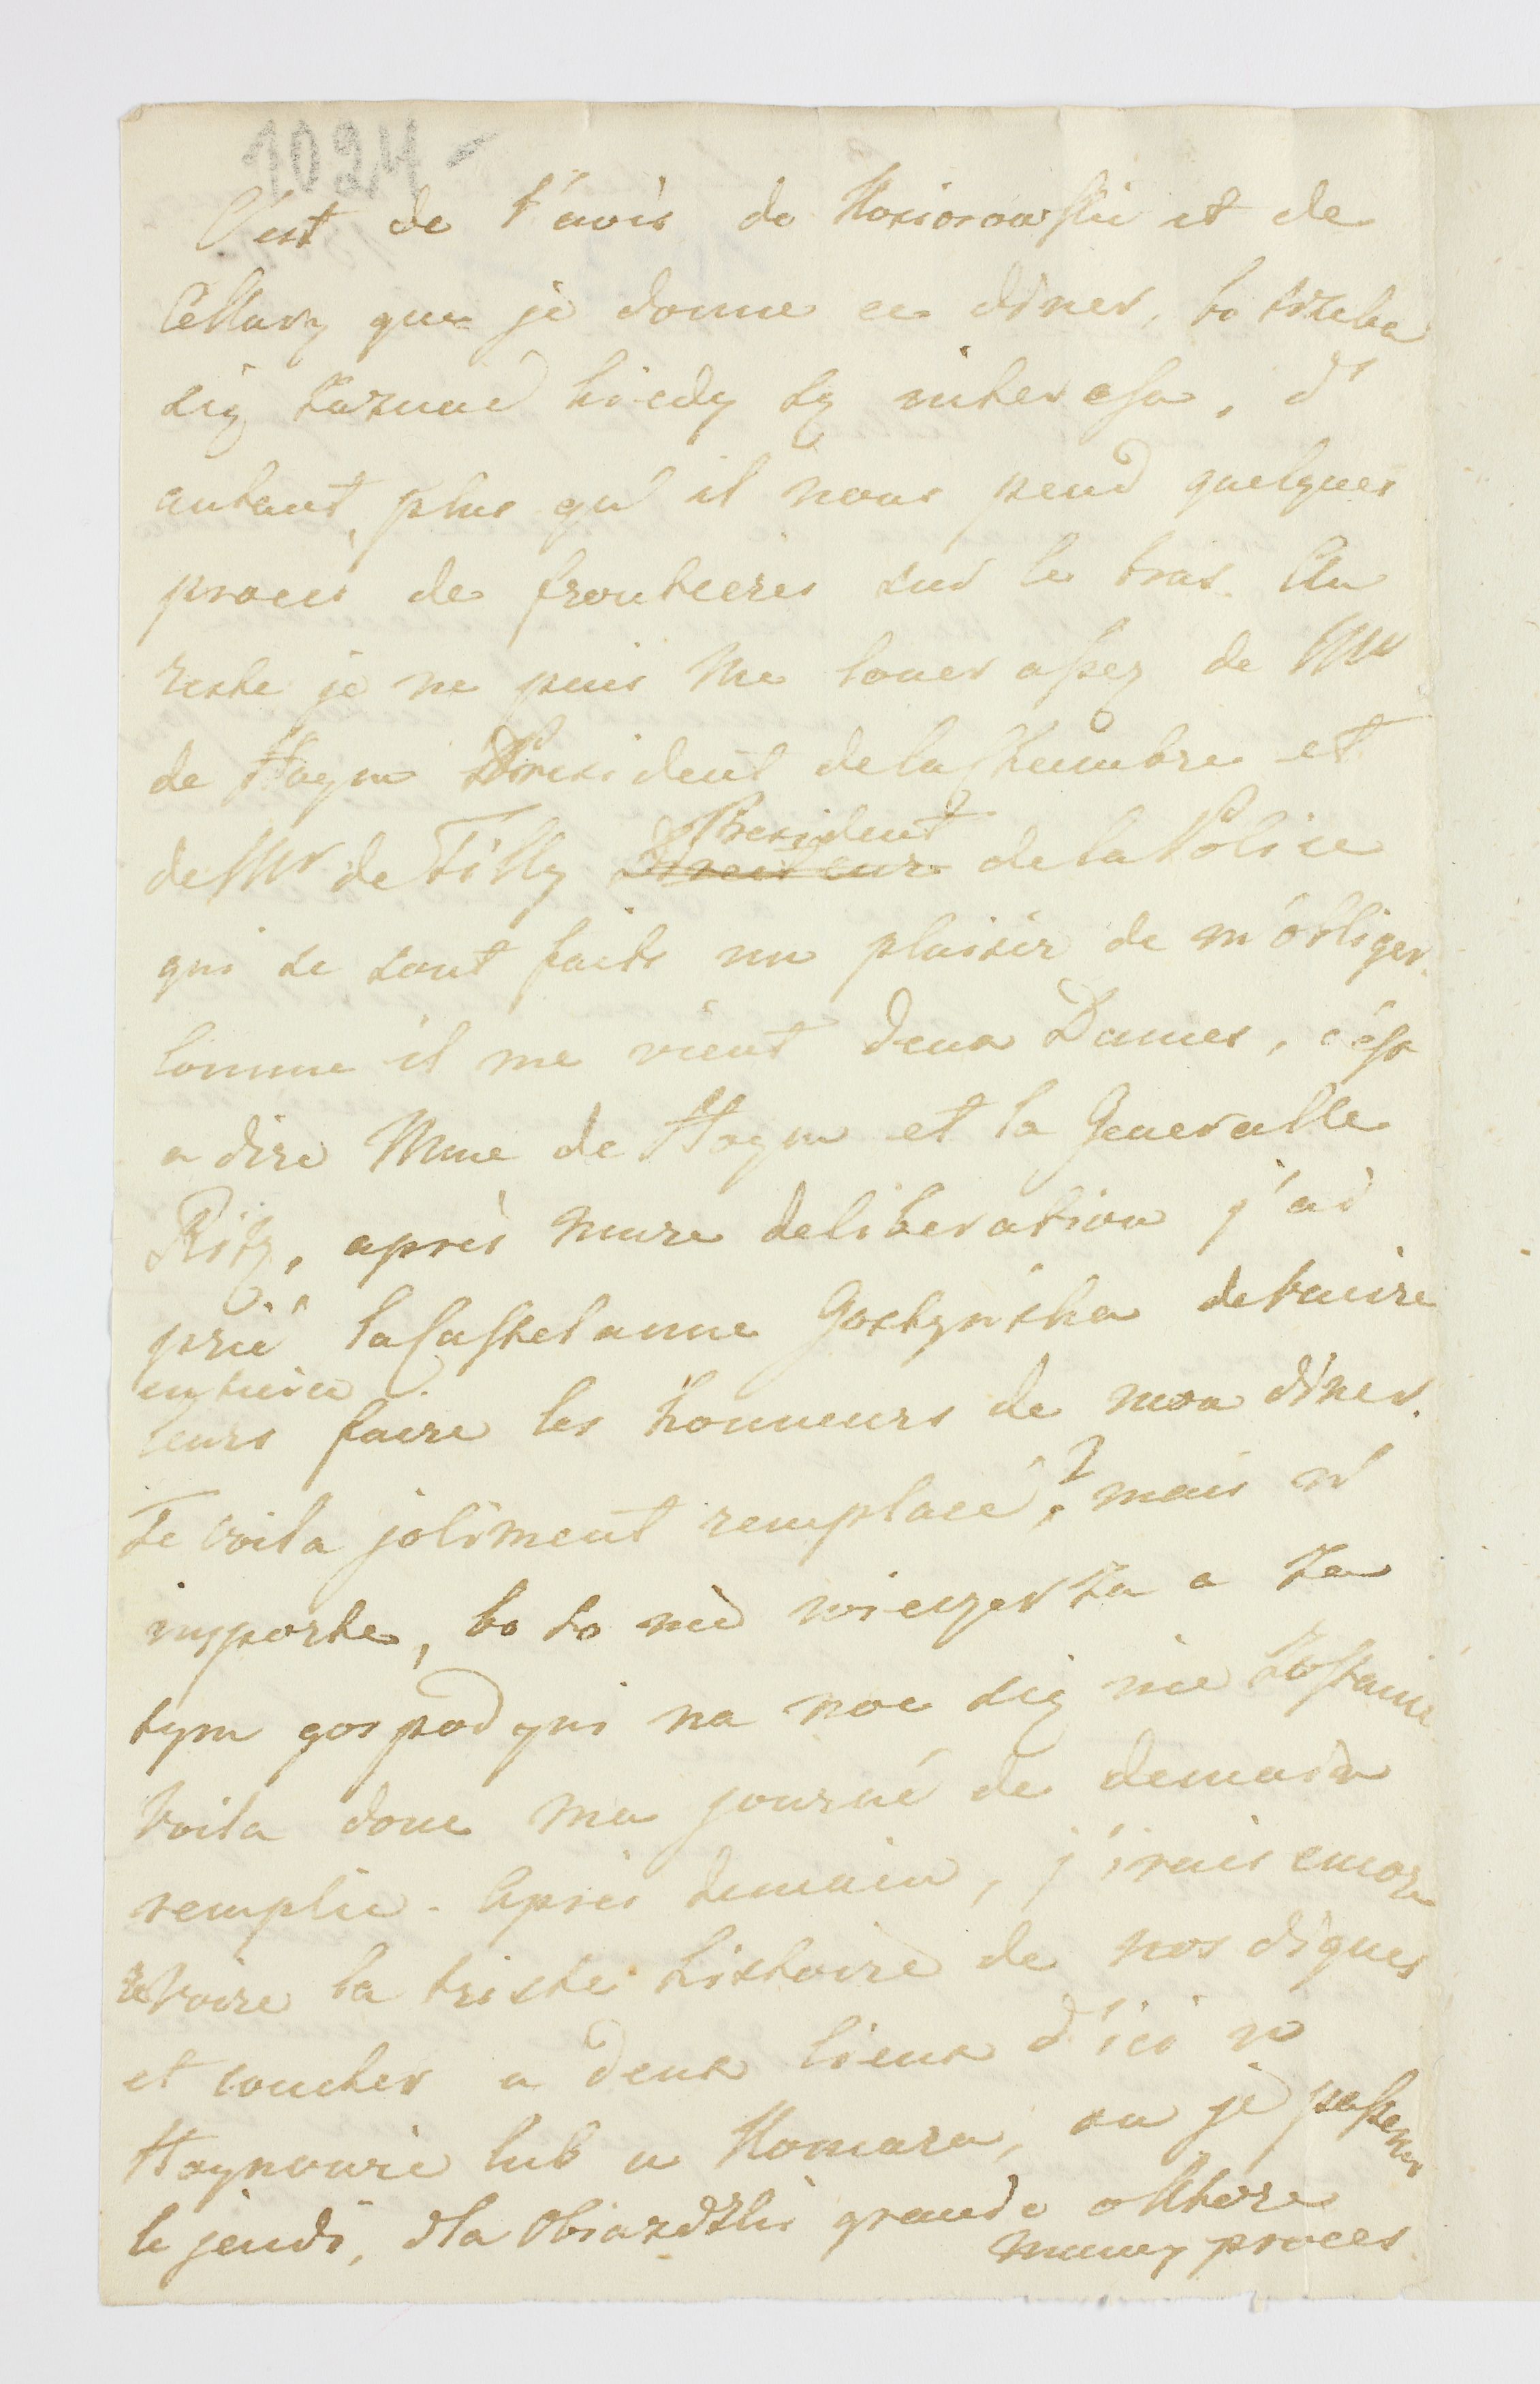 1024 -
C'est de l'avis de Kosiorowski et de
Cellary que je donne ce diner, bo trzeba
się zaznać kiedy są interessa, d'
autant plus qu'il nous pend quelques
proces de frontieres sur le bras. Au
reste je ne puis me louer assez de Mr
de Hoym President de la Chambre et
de Mr de Tilly Directeur President de la Police
qui se sont faits un plaisir de m'obliger.
Comme il me vient deux Dames, c'est
a dire Mme de Hoym et la Generalle
Ritz, après mure deliberation j'ai
prié la Castelanne Gostynska de venire
leurs faire les honneurs de mon diner.
Te voila joliment remplacé? mais n'
importe, bo to nie wieczerza a za
tym gospodyni na noc się nie zostanie
Voila donc ma journé de demain
remplie. Après demain, j'irais encore
revoire la triste histoire de nos digues
et coucher a deux lieux d'ici w
lub u Komara, ou je passerer
le jeudi, dla Obiazdzki granic o które
mamy proces